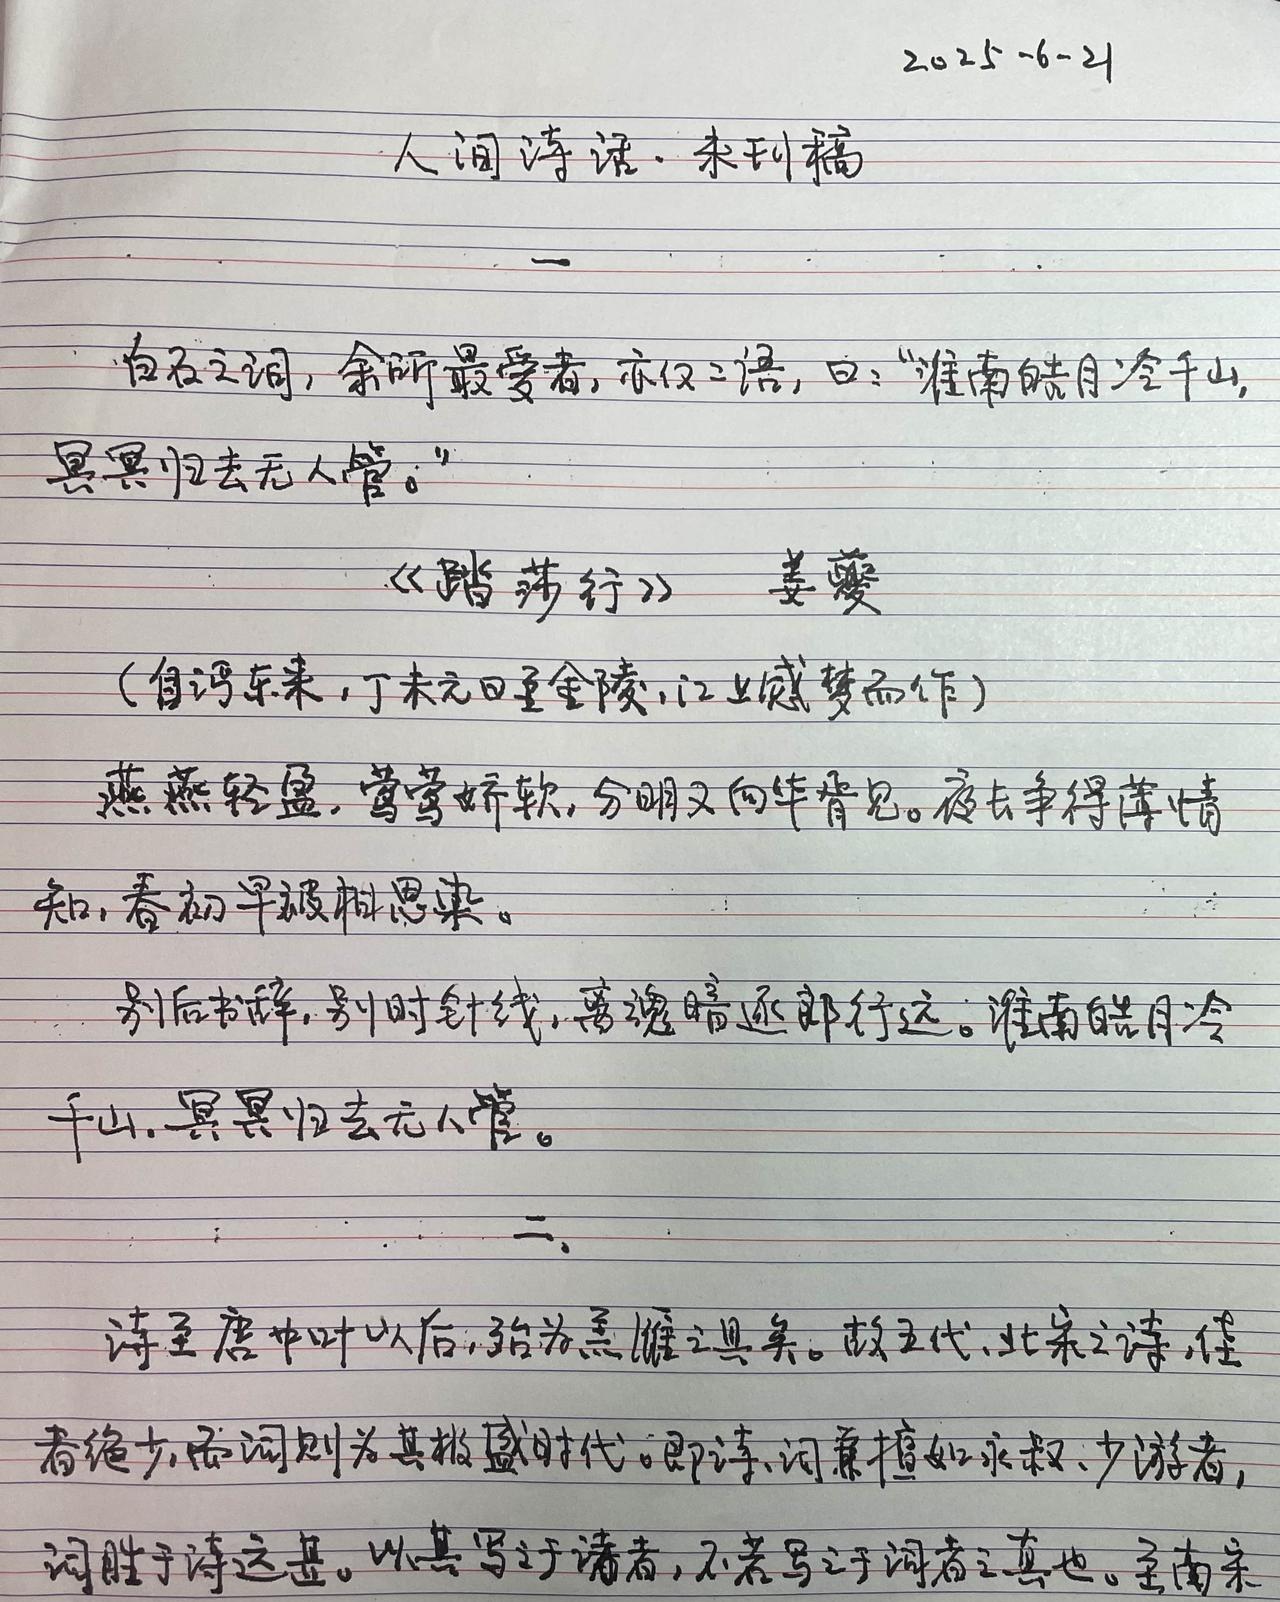 2025-6-21
人间诗话·未刊稿
一
白石之词，余所最爱者，亦仅二语，曰：“淮南皓月冷千山，
冥冥归去无人管。”
《踏莎行》 姜夔
（自沔东来，丁未元日至金陵，江上感梦而作）
燕燕轻盈，莺莺娇软，分明又向华胥见。夜长争得薄情
知，春初早被相思染。
别后书辞，别时针线，离魂暗逐郎行远。淮南皓月冷
千山，冥冥归去无人管。
二、
诗至唐中叶以后，殆为羔雁之具矣。故五代、北宋之诗，佳
者绝少，而词则为其极盛时代。即诗、词兼擅如永叔、少游者，
词胜于诗远甚。以其写之于诸者，不若写之于词者之真也。至南宋